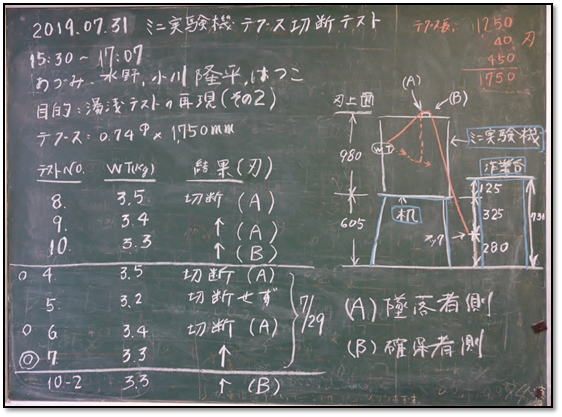 2019.07.31 ミニ実験機テブース切断テスト
15:30~17:07
あづみ、水野、小川 隆平、はつこ
目的:湯浅テストの再現(その2)
テブース:0.74φ×1,750mm
テストNO. WT(Kg) 結果(刃)
8. 3.5 切断(A)
9. 3.4 ↑(A)
10. 3.3 ↑(B)
○ 4. 3.5 切断(A)
5. 3.2 切断せず
○ 6. 3.4 切断(A)
◎ 7. 3.3 ↑
7/29
10-2 3.3 ↑(B)
テブース長: 1250
40 刃
450
1750
(A)
(B)
刃上面
WT
ミニ実験機
980
作業台
125
机
605
325
730
フック
280
(A)墜落者側
(B)確保者側